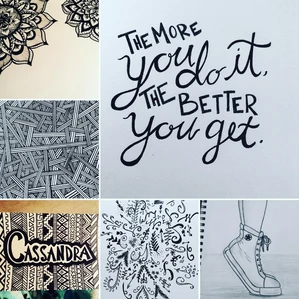 THE MORE
you do it,
THE BETTER
you get.
CASSANDRA